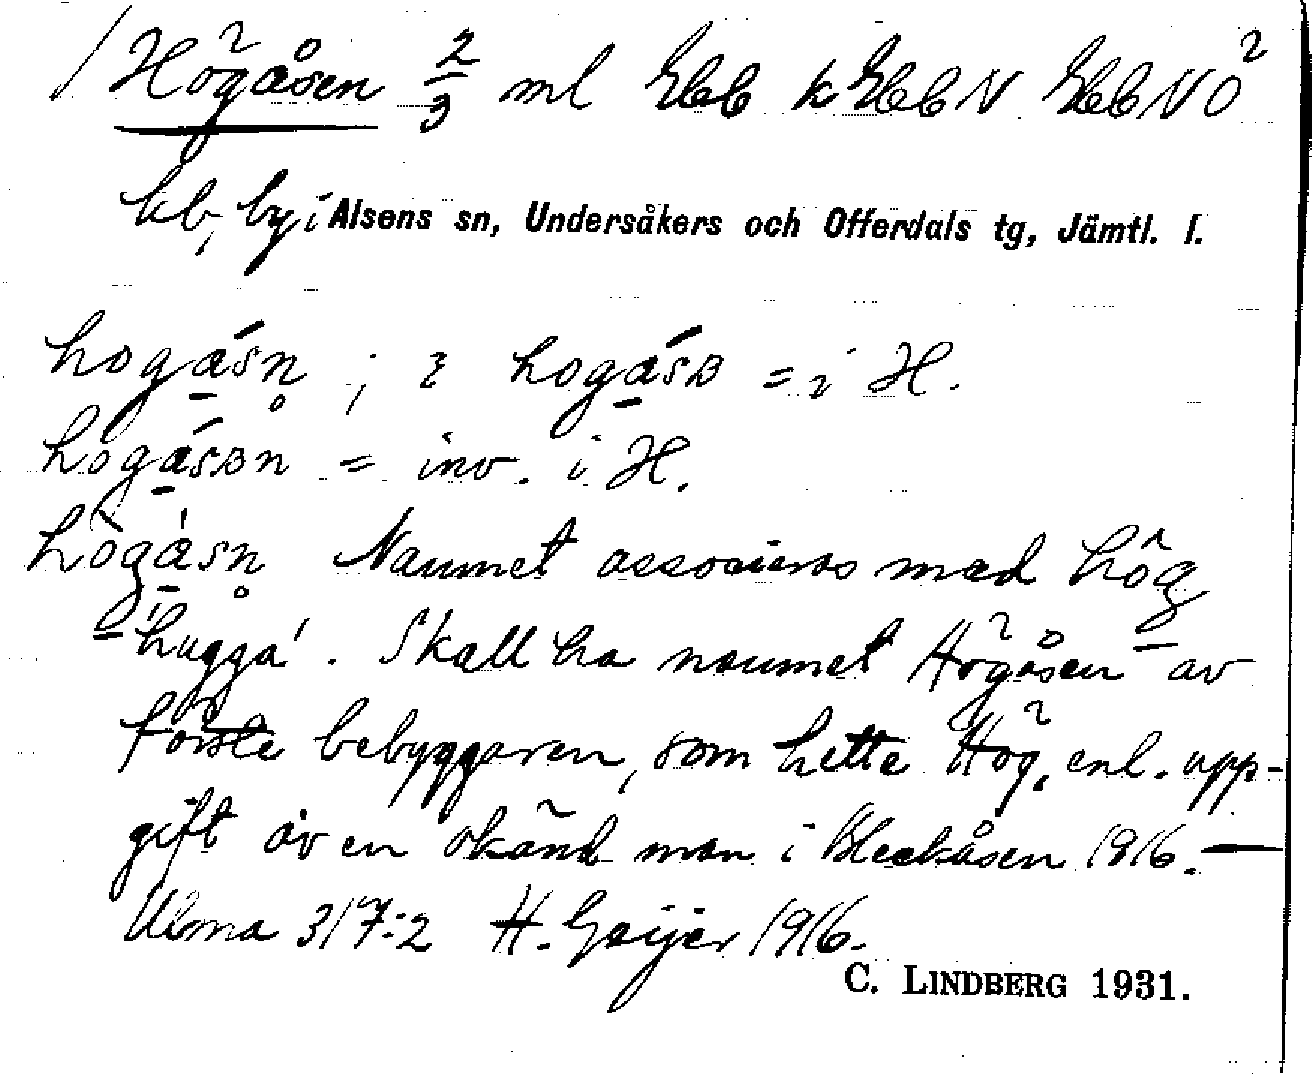 Högåsen 2/3 ml Ebb k EbbN EbbNO²
kb, by i Alsens sn, Undersåkers och Offerdals tg, Jämtl. l.
hogásn ; i hogásɒ = i H.
hogásɒn = inv. i H.
hògásn Namnet associeras med hôg
'hugga'. Skall ha namnet Högåsen av
förste bebyggaren, som hette Hög, enl. upp-
gift av en okänd man i Bleckåsen 1916. —
Ulma 317:2 H. Geijer 1916.
C. LINDBERG 1931.